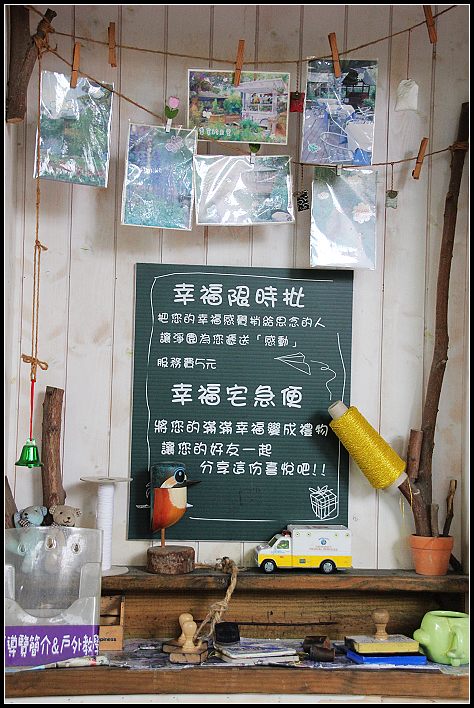 幸福限時批
把您的幸福感覺捎給思念的人
讓淨園為您遞送「感動」
服務費5元
幸福宅急便
將您的滿滿幸福變成禮物
讓您的好友一起
分享這份喜悅吧!!
導覽簡介&戶外教學